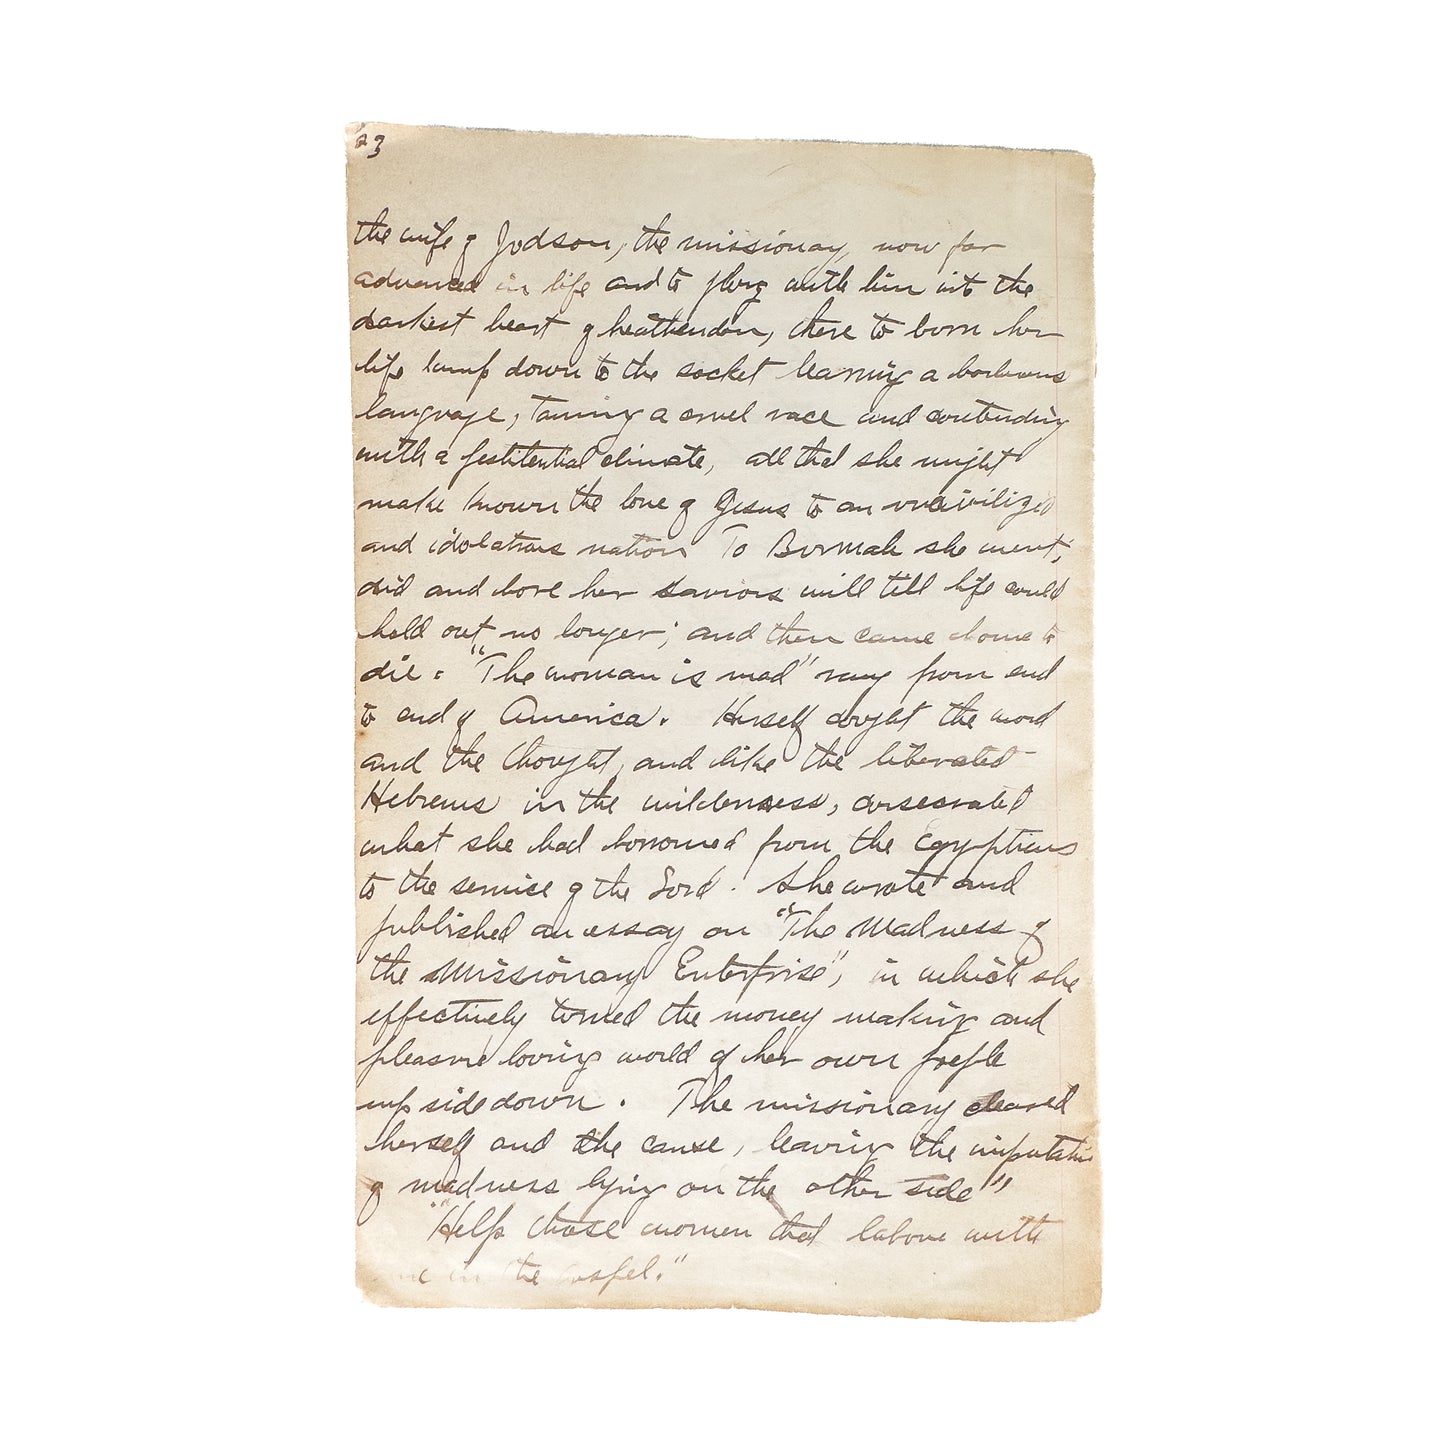 23
the wife of Judson, the missionary, now far
advanced in life and to plung with him into the
darkest heart of heathendom, there to born her
life lamp down to the socket learning a barbarous
language, taming a cruel race and contending
with a pestilential climate, all that she might
make known the love of Jesus to an uncivilized
and idolatrous nation To Burmah she went,
did and bore her saviors will till life could
hold out no longer; and then came home to
die. "The woman is mad" rang from end
to end of America. Herself caught the word
and the thought, and like the liberated
Hebrews in the wilderness, consecrated
what she had borrowed from the Egyptians
to the service of the Lord. She wrote and
published an essay on "The Madness of
the Missionary Enterprise", in which she
effectively turned the money making and
pleasure loving world of her own people
up side down. The missionary cleared
herself and the cause, leaving the imputation
of madness lying on the other side"
"Help those women that labour with
me in the Gospel."